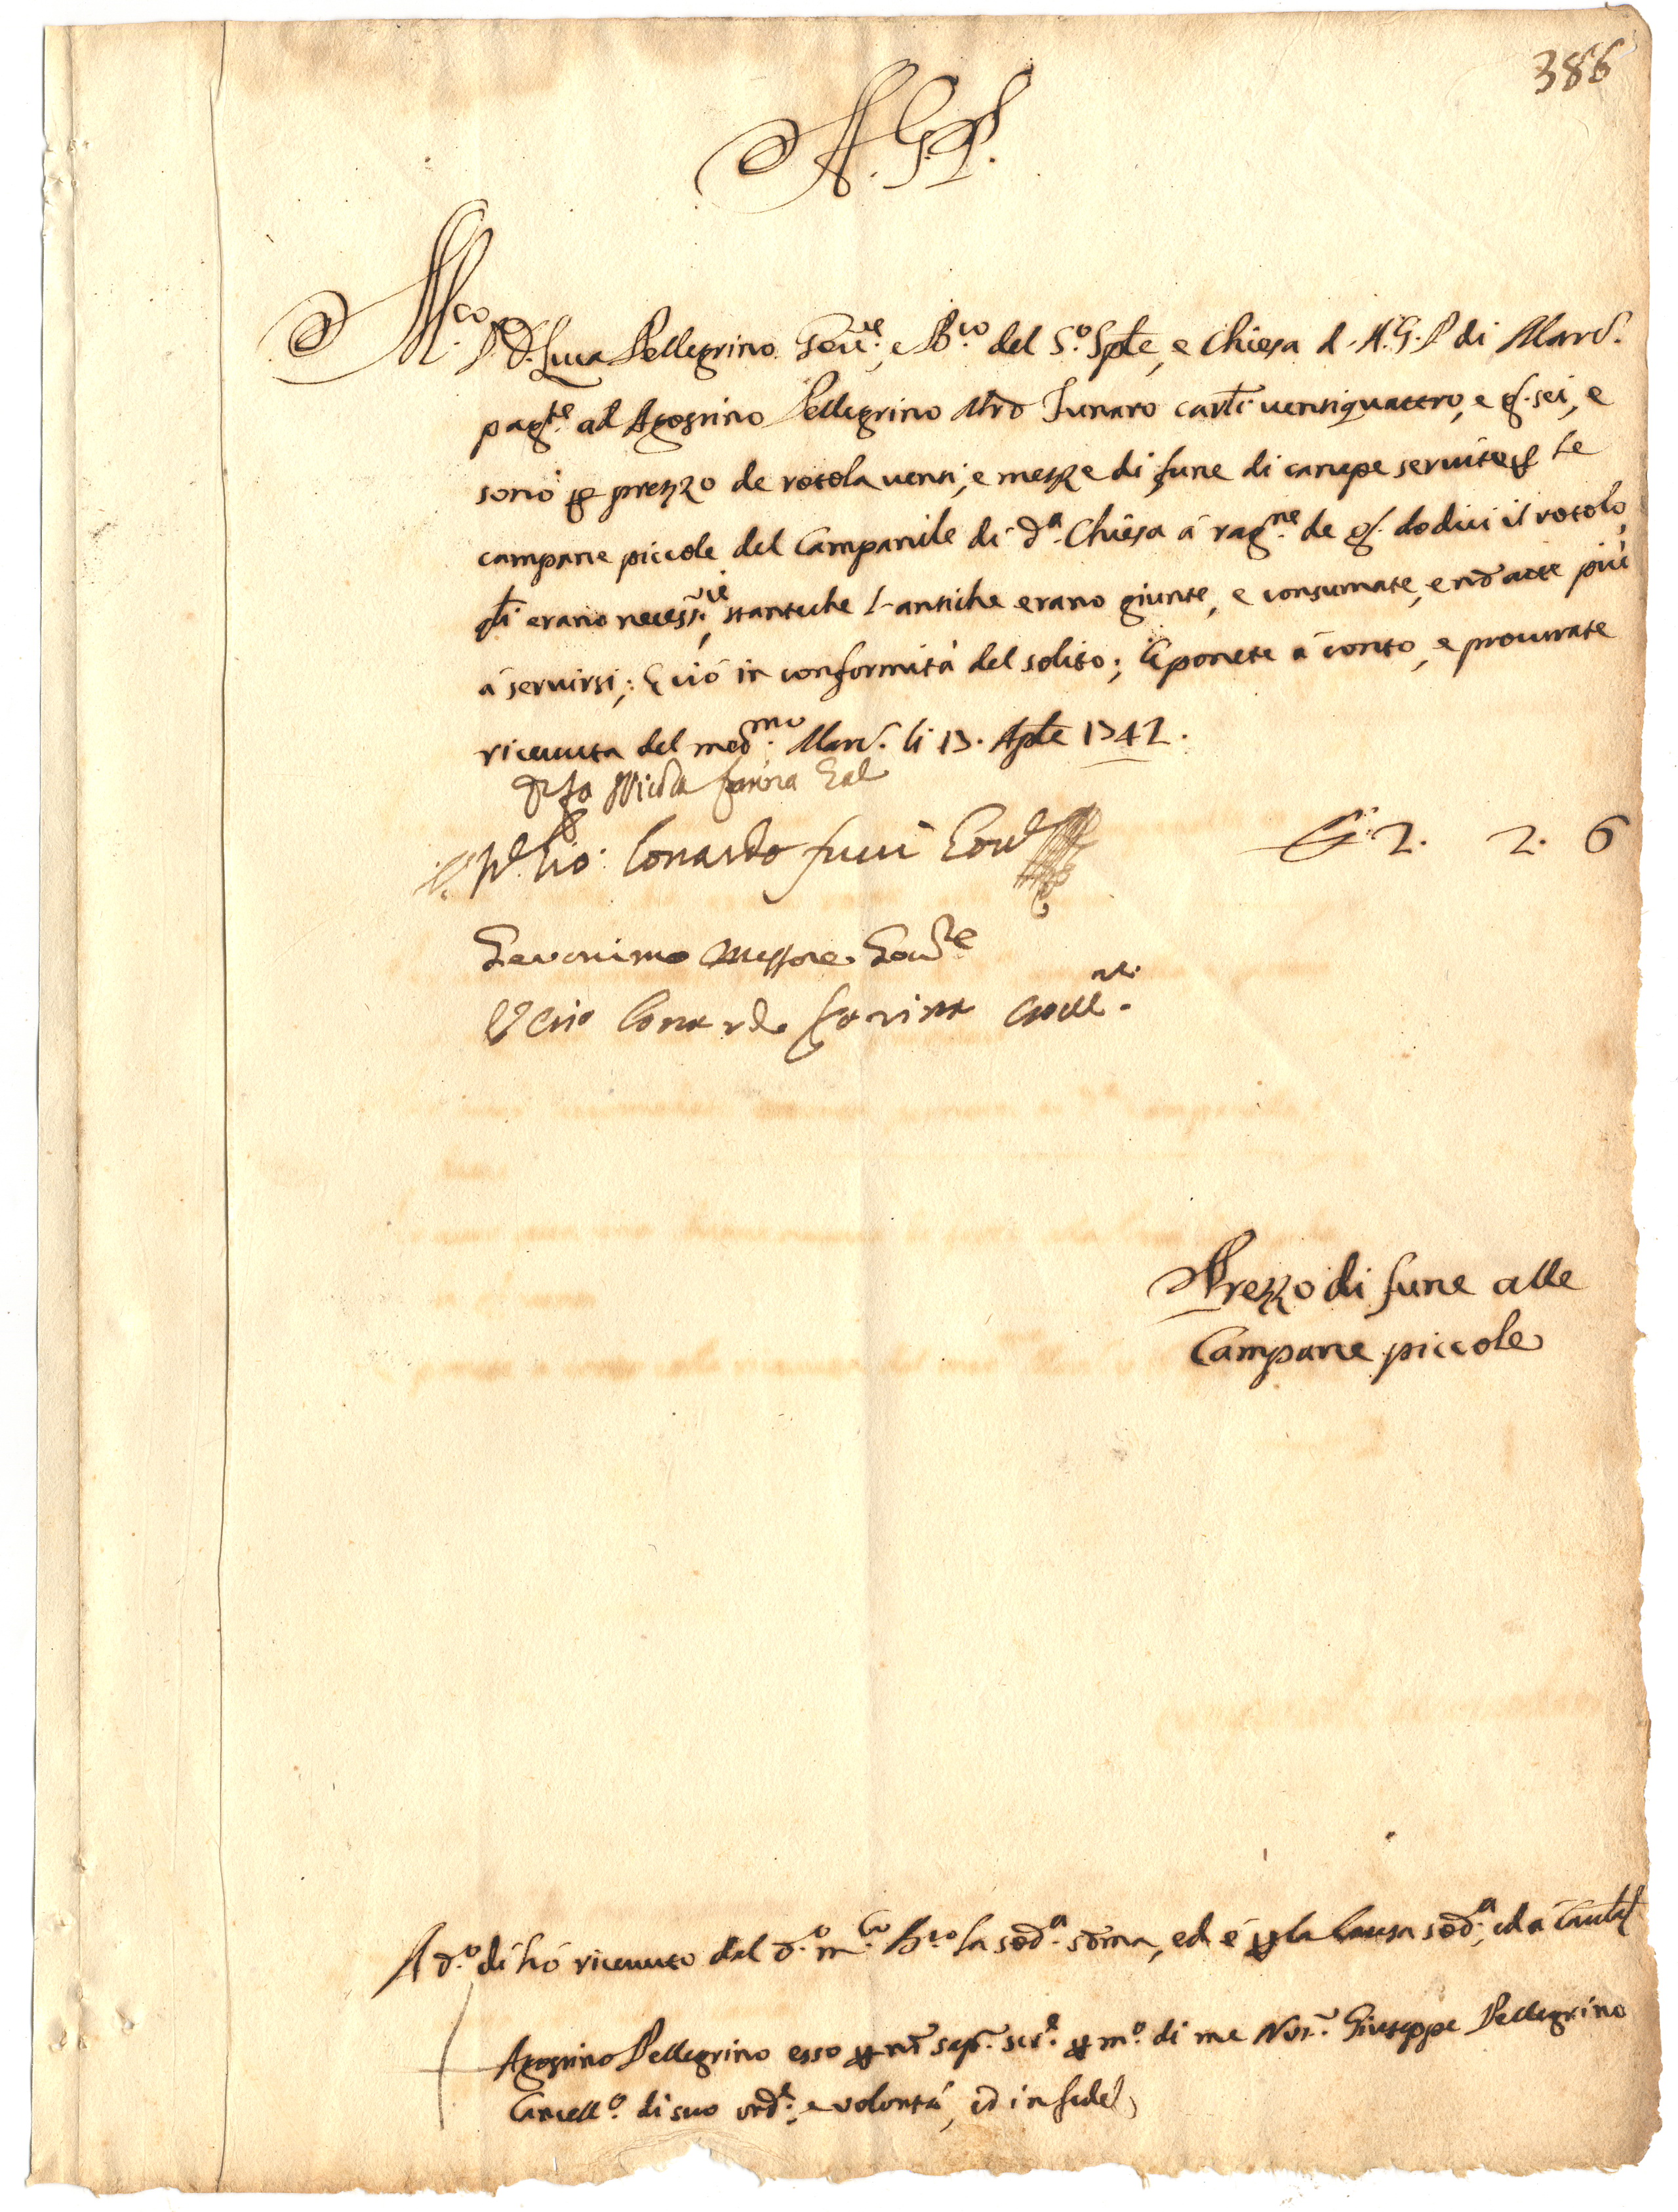 386
A. G. P.
M.co P. D. Luca Pellegrino Gov.re, e B.co del S.o Sple, e Chiesa d. A. G. P di Mard.
pag.te ad Agostino Pellegrino Mro Funaro carli ventiquattro, e g. sei, e
sono p prezzo de rotola venti, e mezze di fune di canepe servite p le
campane piccole del Campanile di d.a Chiesa á rag.ne de g. dodici il rotolo,
qli erano necess.ie, stanteche l-antiche erano giunte, e consumate, e nō atte più
á servirsi; E ciò in conformità del solito; Ci ponete á conto, e procurate
ricevuta del med.mo Mard. li 17. Aple 1742.
farina
Lonardo
D. 2. 2. 6
Geronimo Messore Gov.re
Lonardo farina
Prezzo di fune alle
Campane piccole
A d.o dì hó ricevuto dal d.o m.co B.co la sod.a sōma, ed é p la causa sod.a, ed á Cautel
Agostino Pellegrino esso p nō sap. scr.e p m.o di me Not.r Giuseppe Pellegrino
Cancell.o di suo ord.e, e volontà, ed in fide